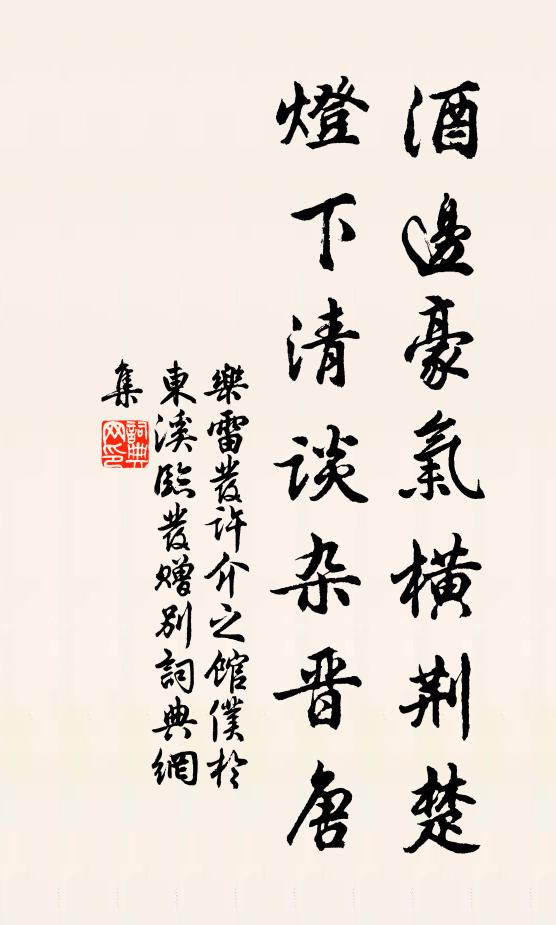 酒邊豪氣橫荆楚
燈下清談杂晋唐
樂雷發許介之館僕於
東溪臨發贈别詞典網
集
詞典
网印